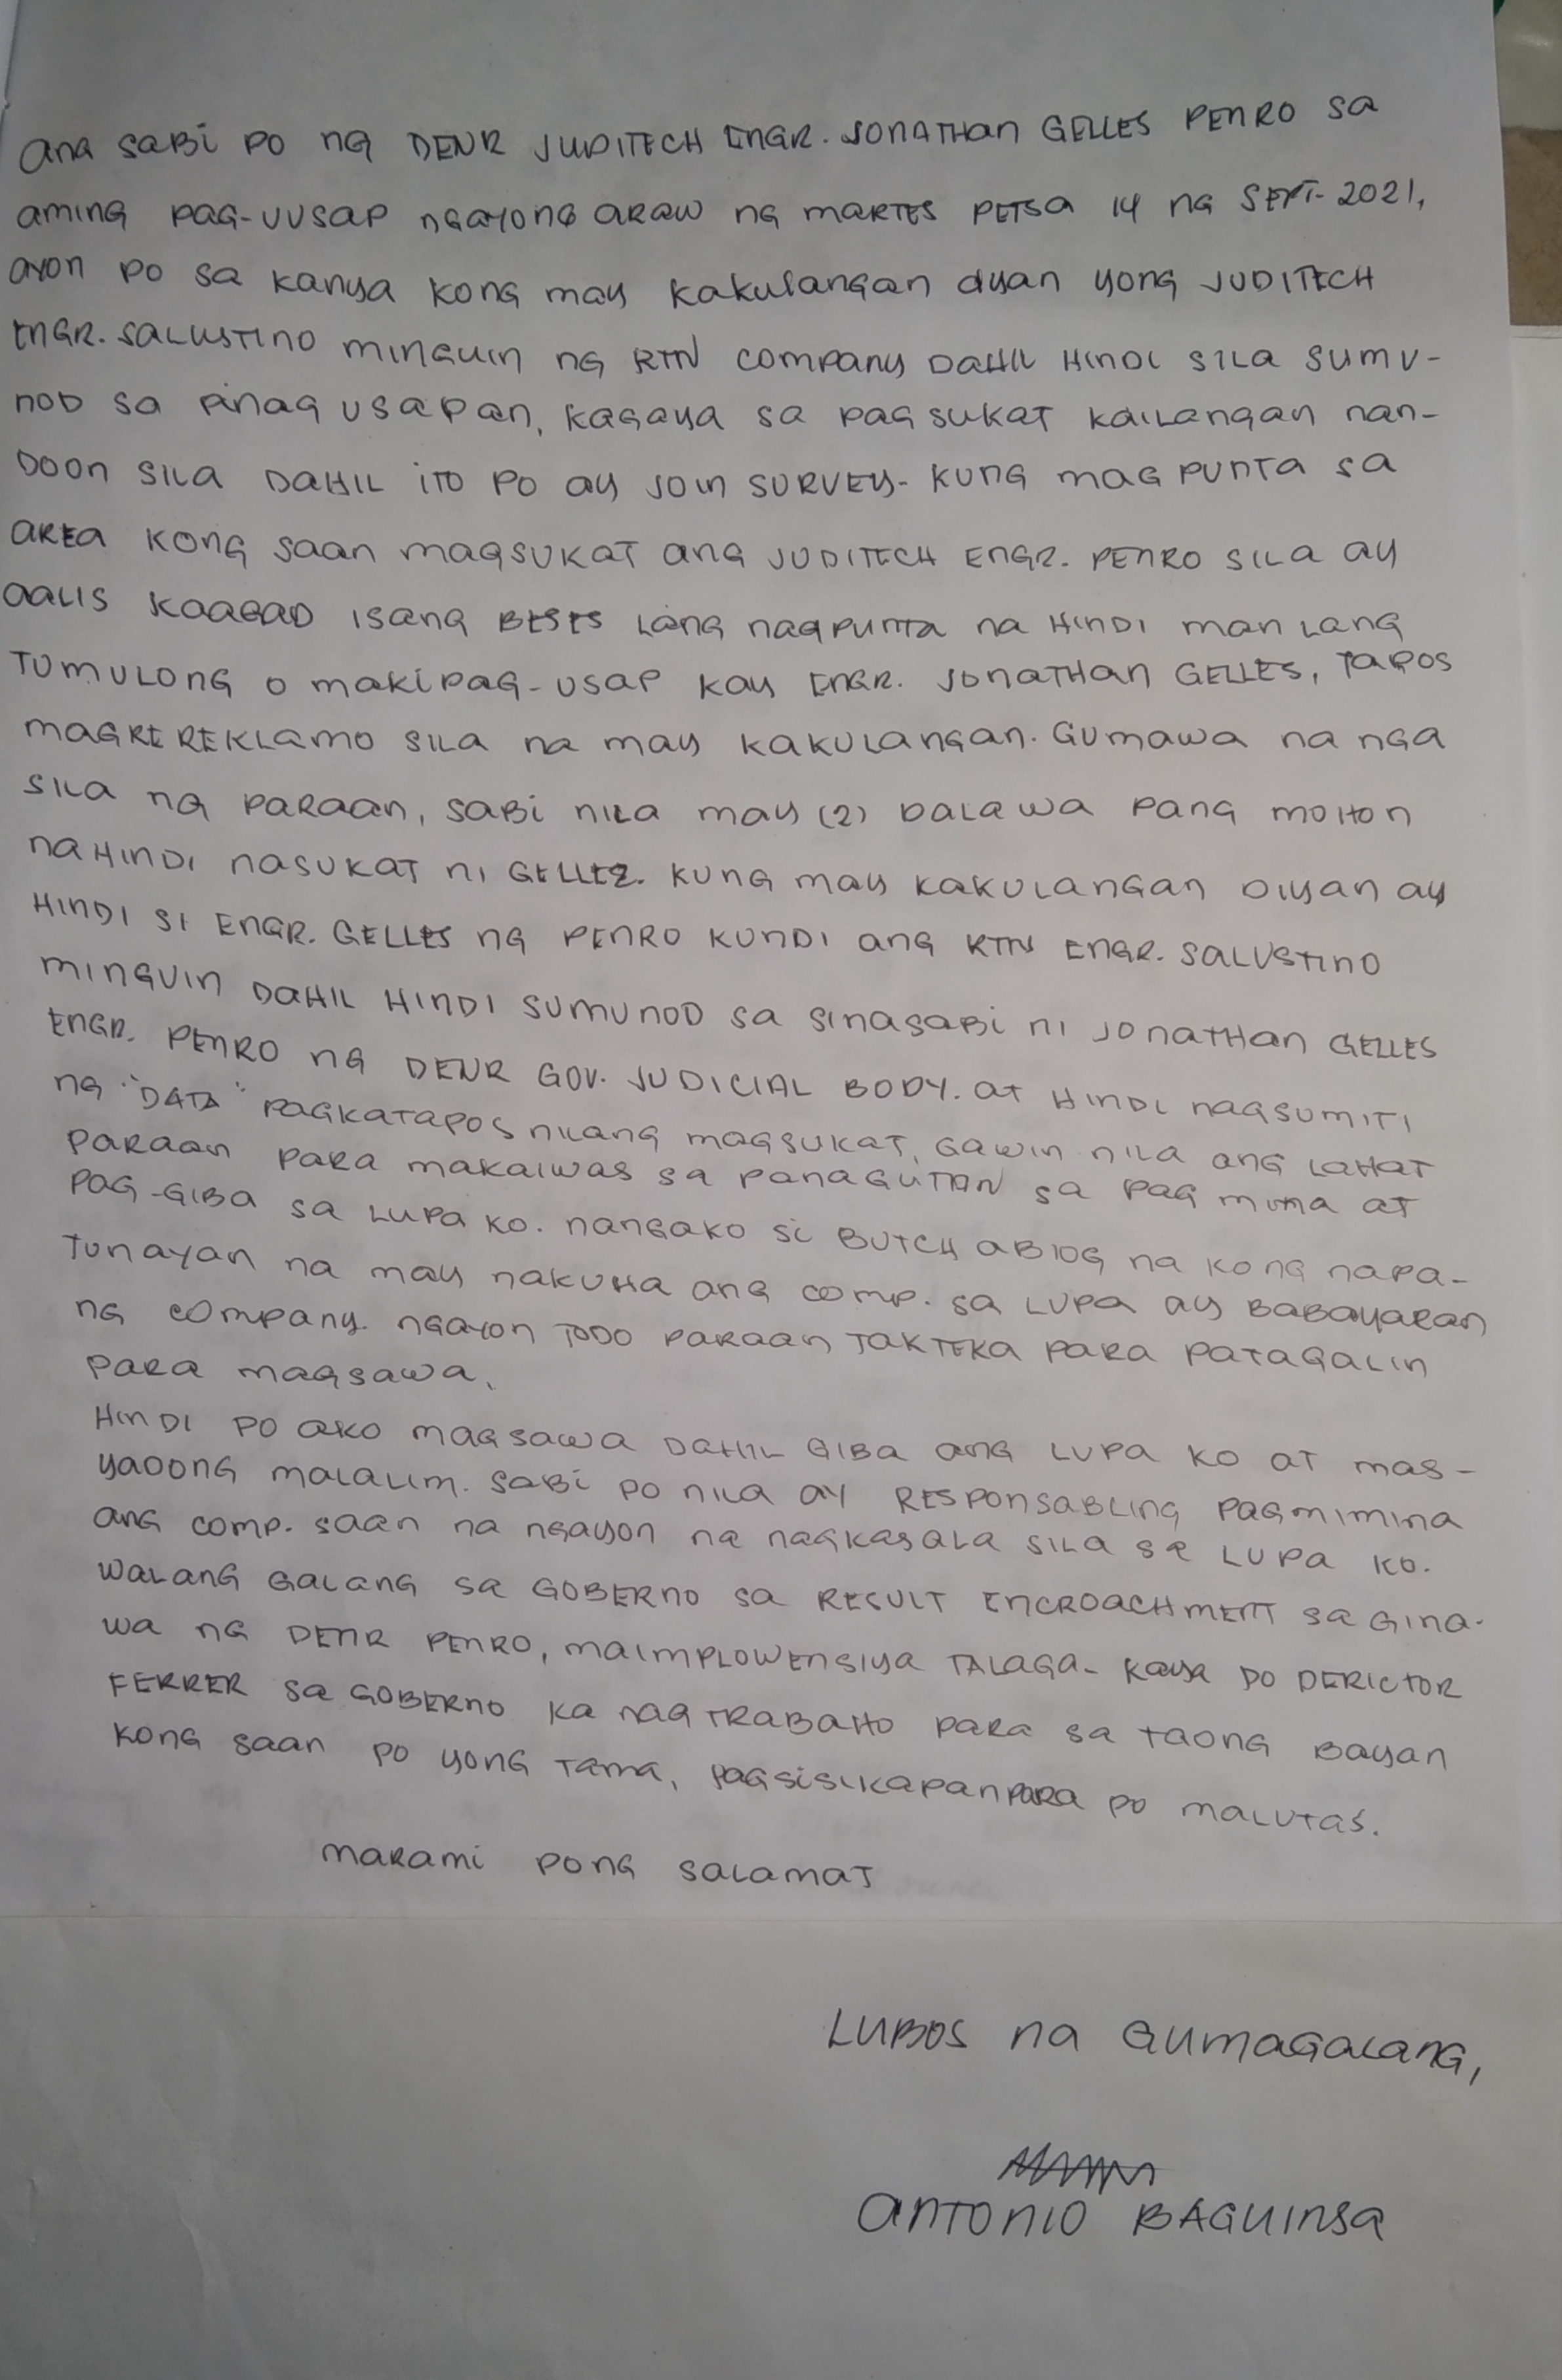 ang sabi po ng DENR JUDITECH ENGR. JONATHAN GELLES PENRO sa
aming pag-uusap ngayong araw ng martes petsa 14 ng SEPT- 2021,
ayon po sa kanya kong may kakulangan dyan yong JUDITECH
ENGR. SALUSTINO MINGUIN ng RTN company DAHIL HINDI SILA SUMU-
NOD sa pinag usapan, kagaya sa pag sukat kailangan nan-
DOON SILA DAHIL ITO PO ay JOIN SURVEY- KUNG MAG PUNTA sa
AREA KONG saan magsukat ang JUDITECH ENGR. PENRO SILA ay
aalis kaagad isang BESES Lang nagpunta na HINDI man Lang
TUMULONG o makipag-usap kay ENGR. JONATHAN GELLES, TAPOS
MAGREREKLAMO SILA na may kakulangan. Gumawa na nga
SILA ng paraan, sabi nila may (2) Dalawa pang mohon
na HINDI nasukat ni GELLEZ. KUNG may kakulangan diyan ay
HINDI SI ENGR. GELLES ng PENRO KUNDI ang RTN ENGR. SALUSTINO
MINGUIN DAHIL HINDI SUMUNOD sa sinasabi ni JONATHAN GELLES
ENGR. PENRO ng DENR GOV. JUDICIAL BODY. at HINDI nagsumiti
ng "DATA" pagkatapos nilang magsukat, gawin nila ang Lahat
paraan para makaiwas sa panagutan sa pag mina at
pag-giba sa Lupa ko. nangako si BUTCH ABIOG na kong napa-
Tunayan na may nakuha ang comp. sa Lupa ay babayaran
ng company. ngayon TODO paraan TAKTEKA para patagalin
para magsawa.
HINDI po ako magsawa DAHIL GIBA ang Lupa ko at mas-
yaoong malalim. Sabi po nila ay RESPONSABLING pagmimina
ang comp. saan na ngayon na nagkasala sila sa Lupa ko.
walang galang sa GOBERNO sa RESULT ENCROACHMENT sa gina-
wa ng DENR PENRO, maimplowensiya TALAGA- kaya po DERICTOR
FERRER sa GOBERNO ka nag trabaho para sa taong bayan
kong saan po yong tama, pagsisikapan para po malutas.
marami pong salamat
LUBOS na gumagalang,
ANTONIO BAGUINSA